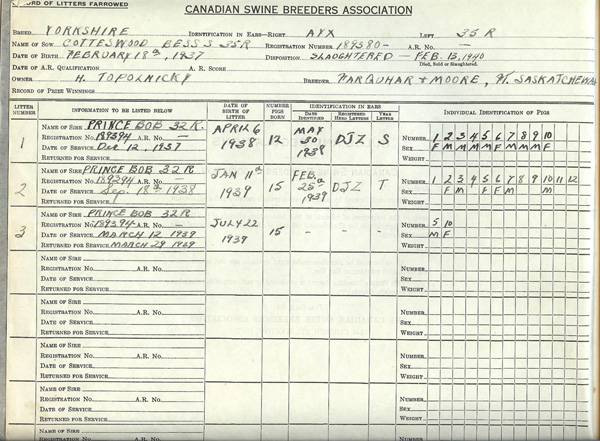 RECORD OF LITTERS FARROWED
CANADIAN SWINE BREEDERS ASSOCIATION
BREED YORKSHIRE IDENTIFICATION IN EARS—RIGHT AYX LEFT 35 R
NAME OF SOW COTTESWOOD BESS S. 35R REGISTRATION NUMBER 189580- A.R. NO. —
DATE OF BIRTH FEBRUARY 18th, 1937 DISPOSITION SLAUGHTERED — FEB. 13, 1940
Died, Sold or Slaughtered.
DATE OF A.R. QUALIFICATION A.R. SCORE
OWNER H. TOPOLNICKY BREEDER MARQUHAR + MOORE, SASKATCHEWAN
RECORD OF PRIZE WINNINGS
LITTER NUMBER INFORMATION TO BE LISTED BELOW DATE OF BIRTH OF LITTER NUMBER PIGS BORN IDENTIFICATION IN EARS INDIVIDUAL IDENTIFICATION OF PIGS
DATE IDENTIFIED REGISTERED HERD LETTERS YEAR LETTER
1 NAME OF SIRE PRINCE BOB 32 R. APRIL 6 1938 12 MAY 30 1938 DJZ S
REGISTRATION NO. 189394 A.R. NO. — NUMBER 1 2 3 4 5 6 7 8 9 10
DATE OF SERVICE Dec 12, 1937 SEX F M M M F M M M F
RETURNED FOR SERVICE WEIGHT
2 NAME OF SIRE PRINCE BOB 32 R JAN 11th 1939 15 FEB. 25th 1939 DJZ T
REGISTRATION NO. 189394 A.R. NO. — NUMBER 1 2 3 4 5 6 7 8 9 10 11 12
DATE OF SERVICE Sep. 18th 1938 SEX F M F F M M
RETURNED FOR SERVICE WEIGHT
3 NAME OF SIRE PRINCE BOB 32R JULY 22 1939 15 - - -
REGISTRATION NO. 189394 A.R. NO. — NUMBER 5 10
DATE OF SERVICE MARCH 12 1939 SEX M F
RETURNED FOR SERVICE MARCH 29 1939 WEIGHT
NAME OF SIRE
REGISTRATION NO. A.R. NO. NUMBER
DATE OF SERVICE SEX
RETURNED FOR SERVICE WEIGHT
NAME OF SIRE
REGISTRATION NO. A.R. NO. NUMBER
DATE OF SERVICE SEX
RETURNED FOR SERVICE WEIGHT
NAME OF SIRE
REGISTRATION NO. A.R. NO. NUMBER
DATE OF SERVICE SEX
RETURNED FOR SERVICE WEIGHT
NAME OF SIRE
REGISTRATION NO. A.R. NO. NUMBER
DATE OF SERVICE SEX
RETURNED FOR SERVICE WEIGHT
NAME OF SIRE